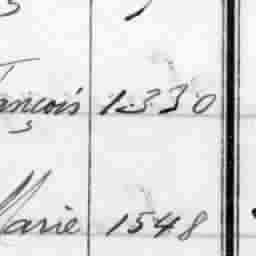 ançois 1330
3
Marie 1548